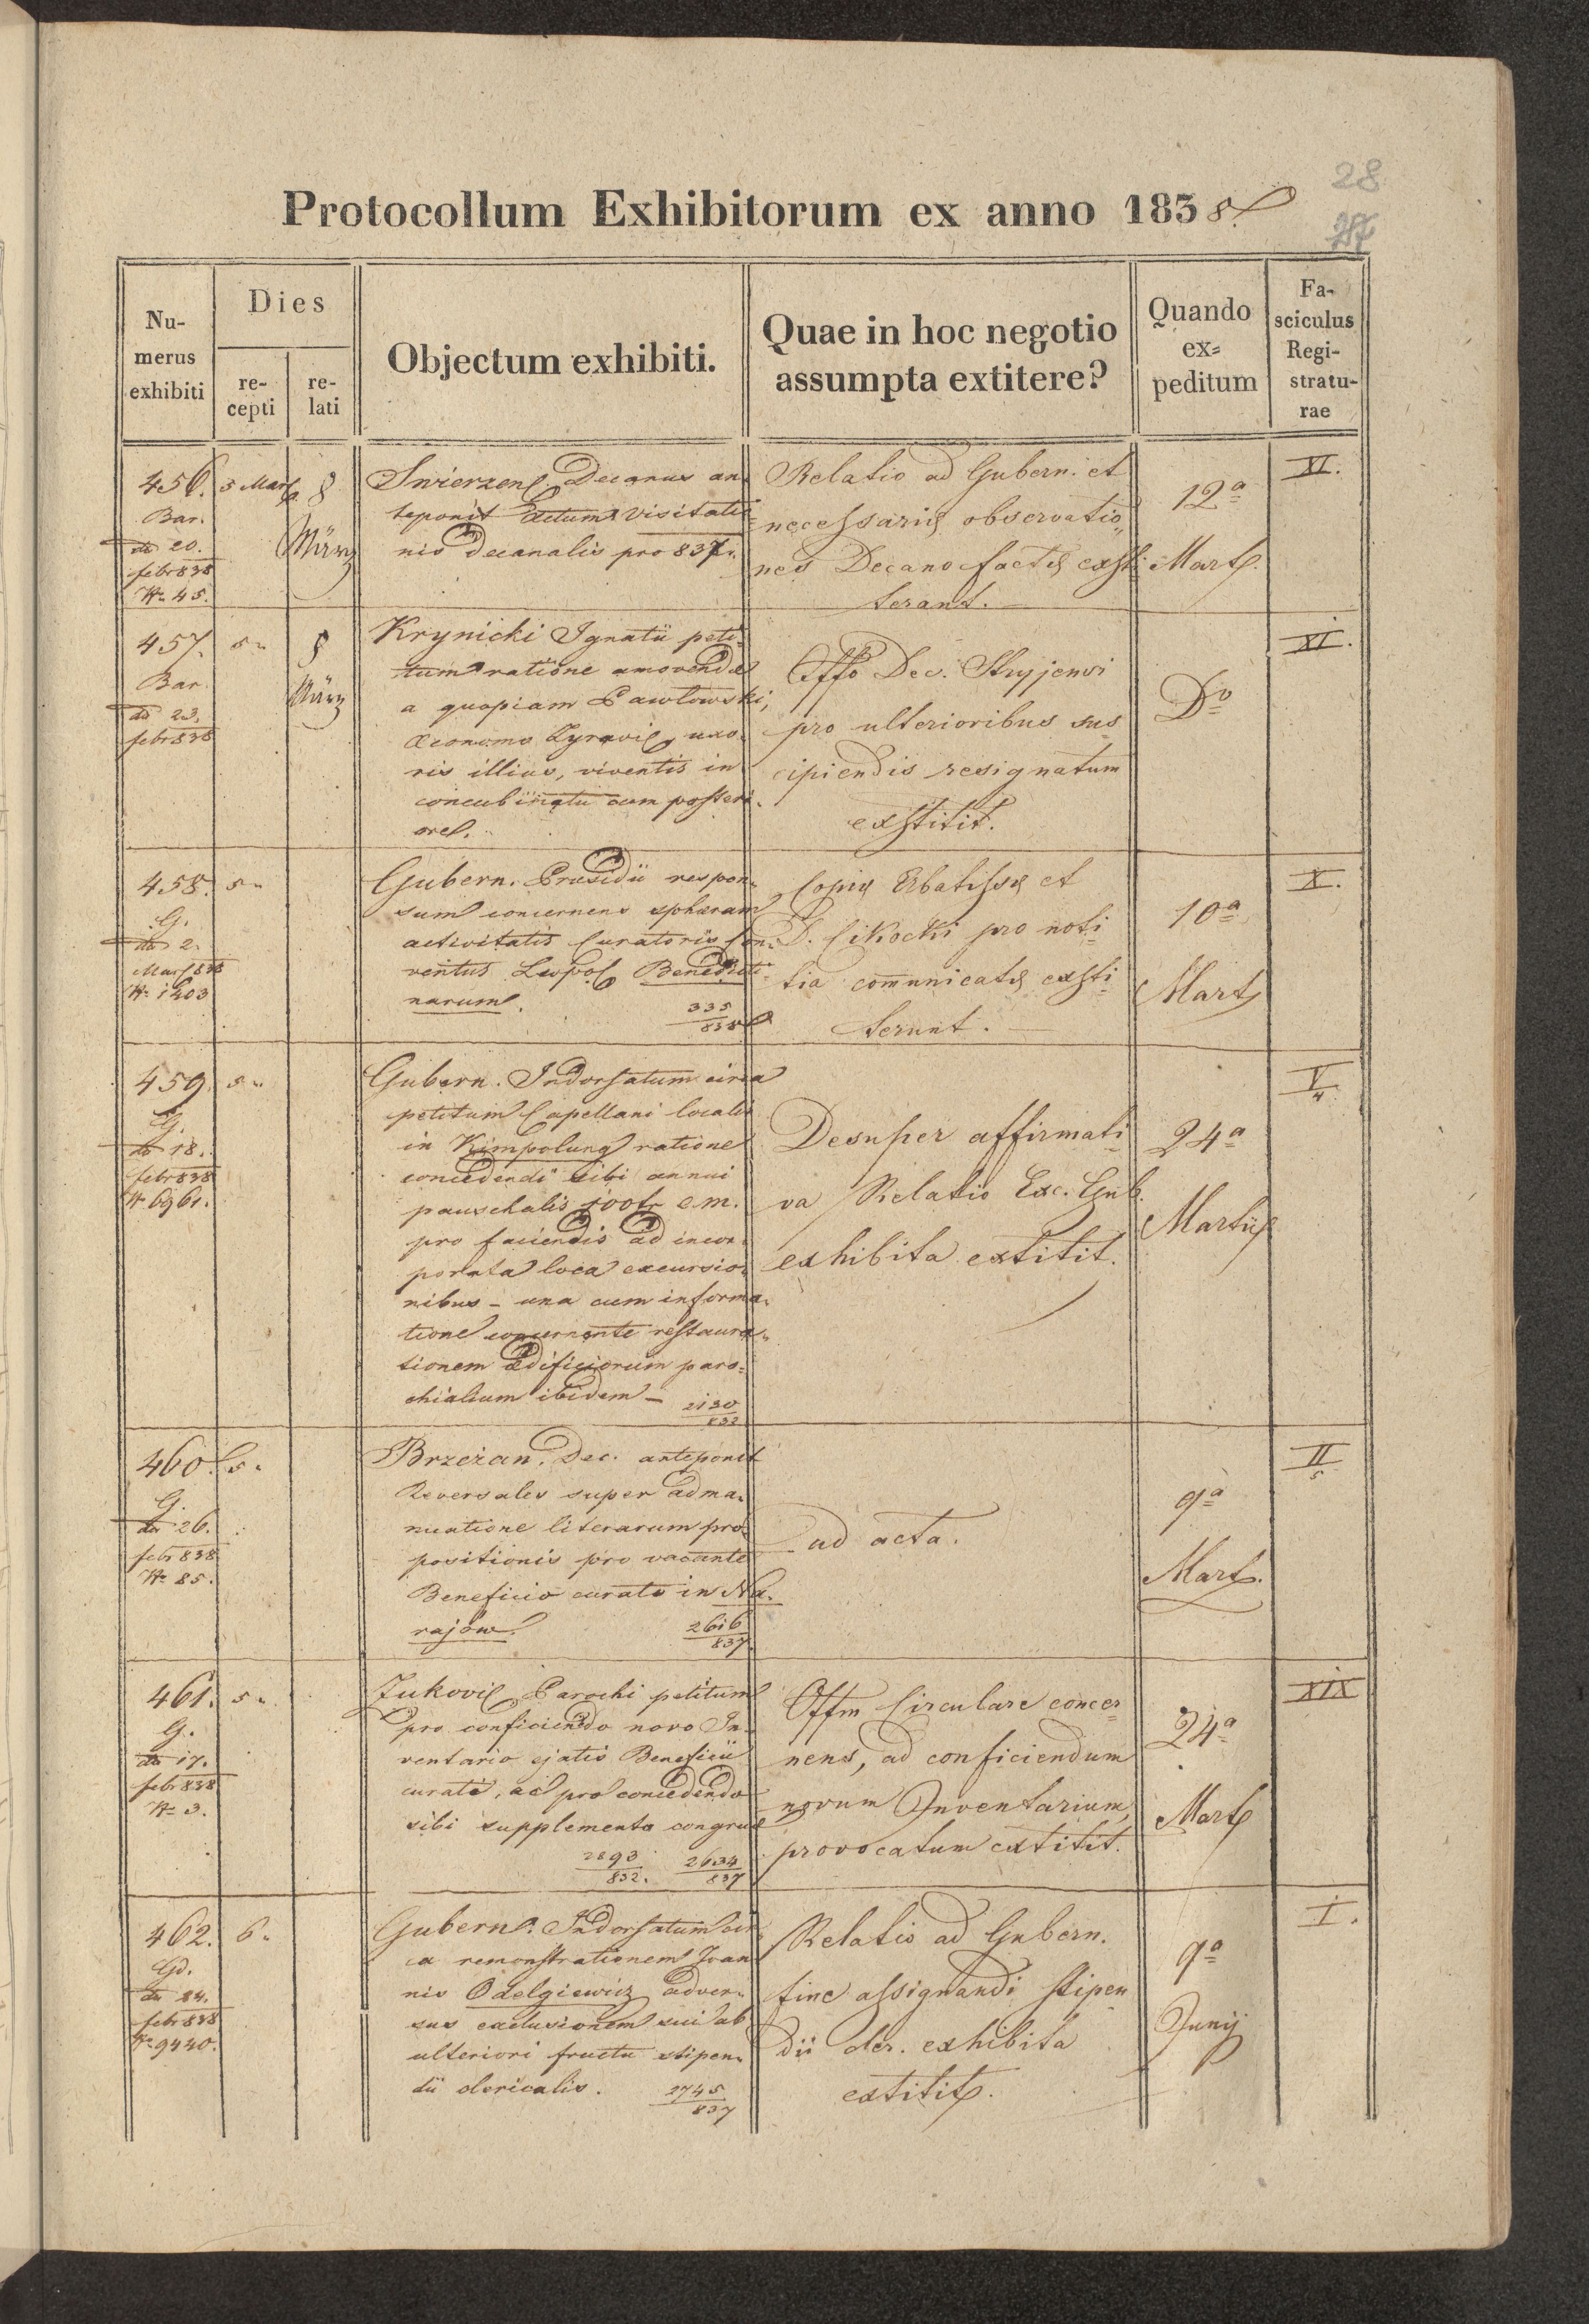 28
Protocollum Exhibitorum ex anno 1838
Nu-
merus
exhibiti
Dies
re-
cepti
re-
lati
Objectum exhibiti.
Quae in hoc negotio
assumpta extitere?
Quando
ex=
peditum
Fa-
sciculus
Regi-
stratu-
rae
456.
Bar.
dd 20.
febr 838
N 45.
5 Mart
8
März
Swierzen. Decanus an
teponit actum visitatio
nis decanalis pro 837.
Relatio ad Gubern. et
necessariæ observatio
nes Decano factæ exsti
terant.
12a
Mart.
XI.
457.
Bar.
dd 23.
febr 838
5
8
März
Krynicki Ignatii peti-
tum ratione amovendæ
a quopiam Pawłowski,
Œconomo Zyravie, uxo
ris illius, viventis in
concubinatu cum posteri
ore.
Offo Dec. Stryjensi
pro ulterioribus sus
cipiendis resignatum
exstitit.
Do
XI.
458.
G.
dd 2.
Mart 838
N 1203
5
Gubern. Præsidii respon
sum concernens sphæram
activitatis Curatoris Con
ventus Leopol. Benedicti
narum.
335
838
Copiæ Abatissæ et
D. Cikocki pro noti-
tia communicatæ exsti-
terunt.
10a
Mart
X.
459.
G.
dd 18.
febr 838
N 6961.
5
Gubern. Indorsatum circa
petitum Capellani localis
in Kimpolung ratione
concedendi sibi annui
pauschalis 100 f. c.m.
pro faciendis ad incor
porata loca excursio
nibus - una cum informa
tione concernente restaura
tionem ædificiorum paro=
chialium ibidem -
2130
832
Desuper affirmati-
va Relatio Exc. Gub.
exhibita extitit.
24a
Martii
V
4.
460.
G.
dd 26.
febr 838
N 85.
5.
Brzeżan. Dec. anteponit
Reversales super adma
nuatione literarum pro
positionis pro vacante
Beneficio curato in Na
rajów.
2616
837
ad acta.
9a
Mart.
II
5
461.
G.
dd 17.
febr 838
N 3.
5
Żukovie Parochi petitum
pro conficiendo novo In
ventario ejatis Beneficii
curati, ac pro concedendo
sibi supplemento congruæ
2893
832.
2634
837
Offm Circulare concer=
nens, ad conficiendum
novum Inventarium,
provocatum extitit.
24a
Mart
XIX
462.
Gd.
dd 24.
febr 838
N 9440.
6
Gubern. Indorsatum cir
ca remonstrationem Joan
nis Odelgiewicz adver
sus exclusionem sui ab
ulteriori fructu stipen
dii clericalis.
2745
837
Relatio ad Gubern.
fine assignandi stipen
dii cler. exhibita
extitit.
9a
Junij
I.